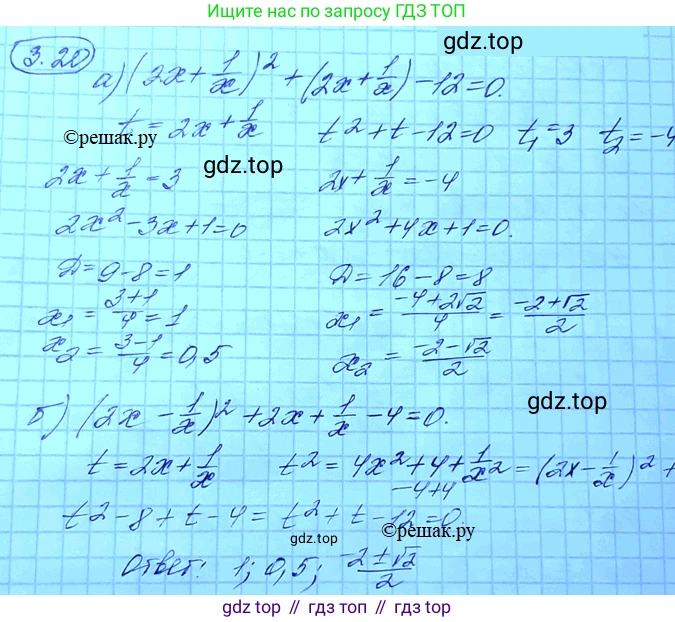 Ищите нас по запросу ГДЗ ТОП
3.20
gdz.top
а) (2x + 1/x)² + (2x + 1/x) - 12 = 0.
t = 2x + 1/x    t² + t - 12 = 0    t₁ = 3    t₂ = -4
©решак.ру
gdz.top
2x + 1/x = 3    2x + 1/x = -4
2x² - 3x + 1 = 0    2x² + 4x + 1 = 0.
D = 9 - 8 = 1    D = 16 - 8 = 8
x₁ = (3+1)/4 = 1    x₁ = (-4+2√2)/4 = (-2+√2)/2
x₂ = (3-1)/4 = 0,5    x₂ = (-2-√2)/2
gdz.top
б) (2x - 1/x)² + 2x + 1/x - 4 = 0.
t = 2x + 1/x    t² = 4x² + 4 + 1/x² = (2x - 1/x)² +
-4+4
t² - 8 + t - 4 = t² + t - 12 = 0
gdz.top
Ответ: 1; 0,5; (-2±√2)/2
©решак.ру
gdz top // гдз топ // gdz.top